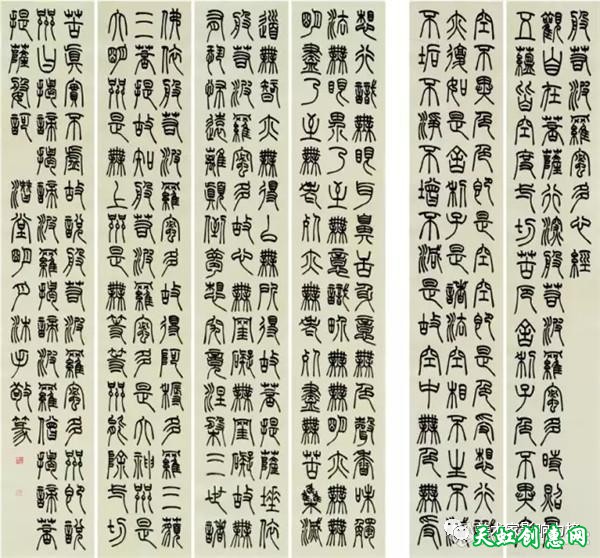 般若波羅蜜多心經
觀自在菩薩行深般若波羅蜜多時照見
五蘊皆空度一切苦厄舍利子色不異
空不異色色即是空空即是色受想行識
亦復如是舍利子是諸法空相不生不滅
不垢不淨不增不減是故空中無色無受
想行識無眼耳鼻舌身意無色聲香味觸
法無眼界乃至無意識界無無明亦無無
明盡乃至無老死亦無老死盡無苦集滅
道無智亦無得以無所得故菩提薩埵依
般若波羅蜜多故心無罣礙無罣礙故無
有恐怖遠離顛倒夢想究竟涅槃三世諸
佛依般若波羅蜜多故得阿耨多羅三藐
三菩提故知般若波羅蜜多是大神咒是
大明咒是無上咒是無等等咒能除一切
苦真實不虛故說般若波羅蜜多咒即說
咒曰揭諦揭諦波羅揭諦波羅僧揭諦菩
提薩婆訶 明月沐手敬篆
天虹创意网